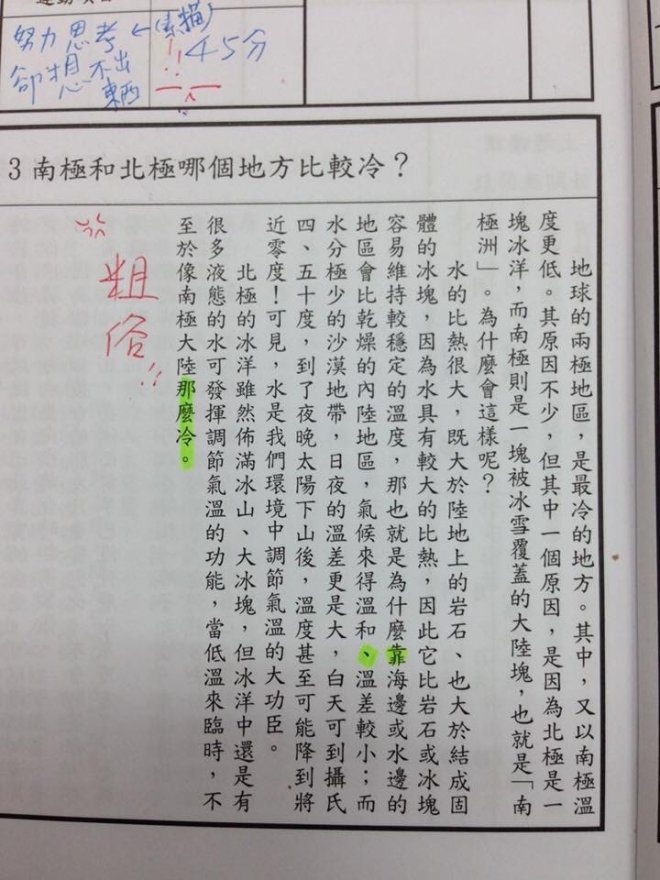 努力思考←(素描)
卻想不出
東西
!!
45分
3 南極和北極哪個地方比較冷?
地球的兩極地區,是最冷的地方。其中,又以南極溫
度更低。其原因不少,但其中一個原因,是因為北極是一
塊冰洋,而南極則是一塊被冰雪覆蓋的大陸塊,也就是「南
極洲」。為什麼會這樣呢?
水的比熱很大,既大於陸地上的岩石、也大於結成固
體的冰塊,因為水具有較大的比熱,因此它比岩石或冰塊
容易維持較穩定的溫度,那也就是為什麼靠海邊或水邊的
地區會比乾燥的內陸地區,氣候來得溫和、溫差較小;而
水分極少的沙漠地帶,日夜的溫差更是大,白天可到攝氏
四、五十度,到了夜晚太陽下山後,溫度甚至可能降到將
近零度!可見,水是我們環境中調節氣溫的大功臣。
北極的冰洋雖然佈滿冰山、大冰塊,但冰洋中還是有
很多液態的水可發揮調節氣溫的功能,當低溫來臨時,不
至於像南極大陸那麼冷。
粗俗!!